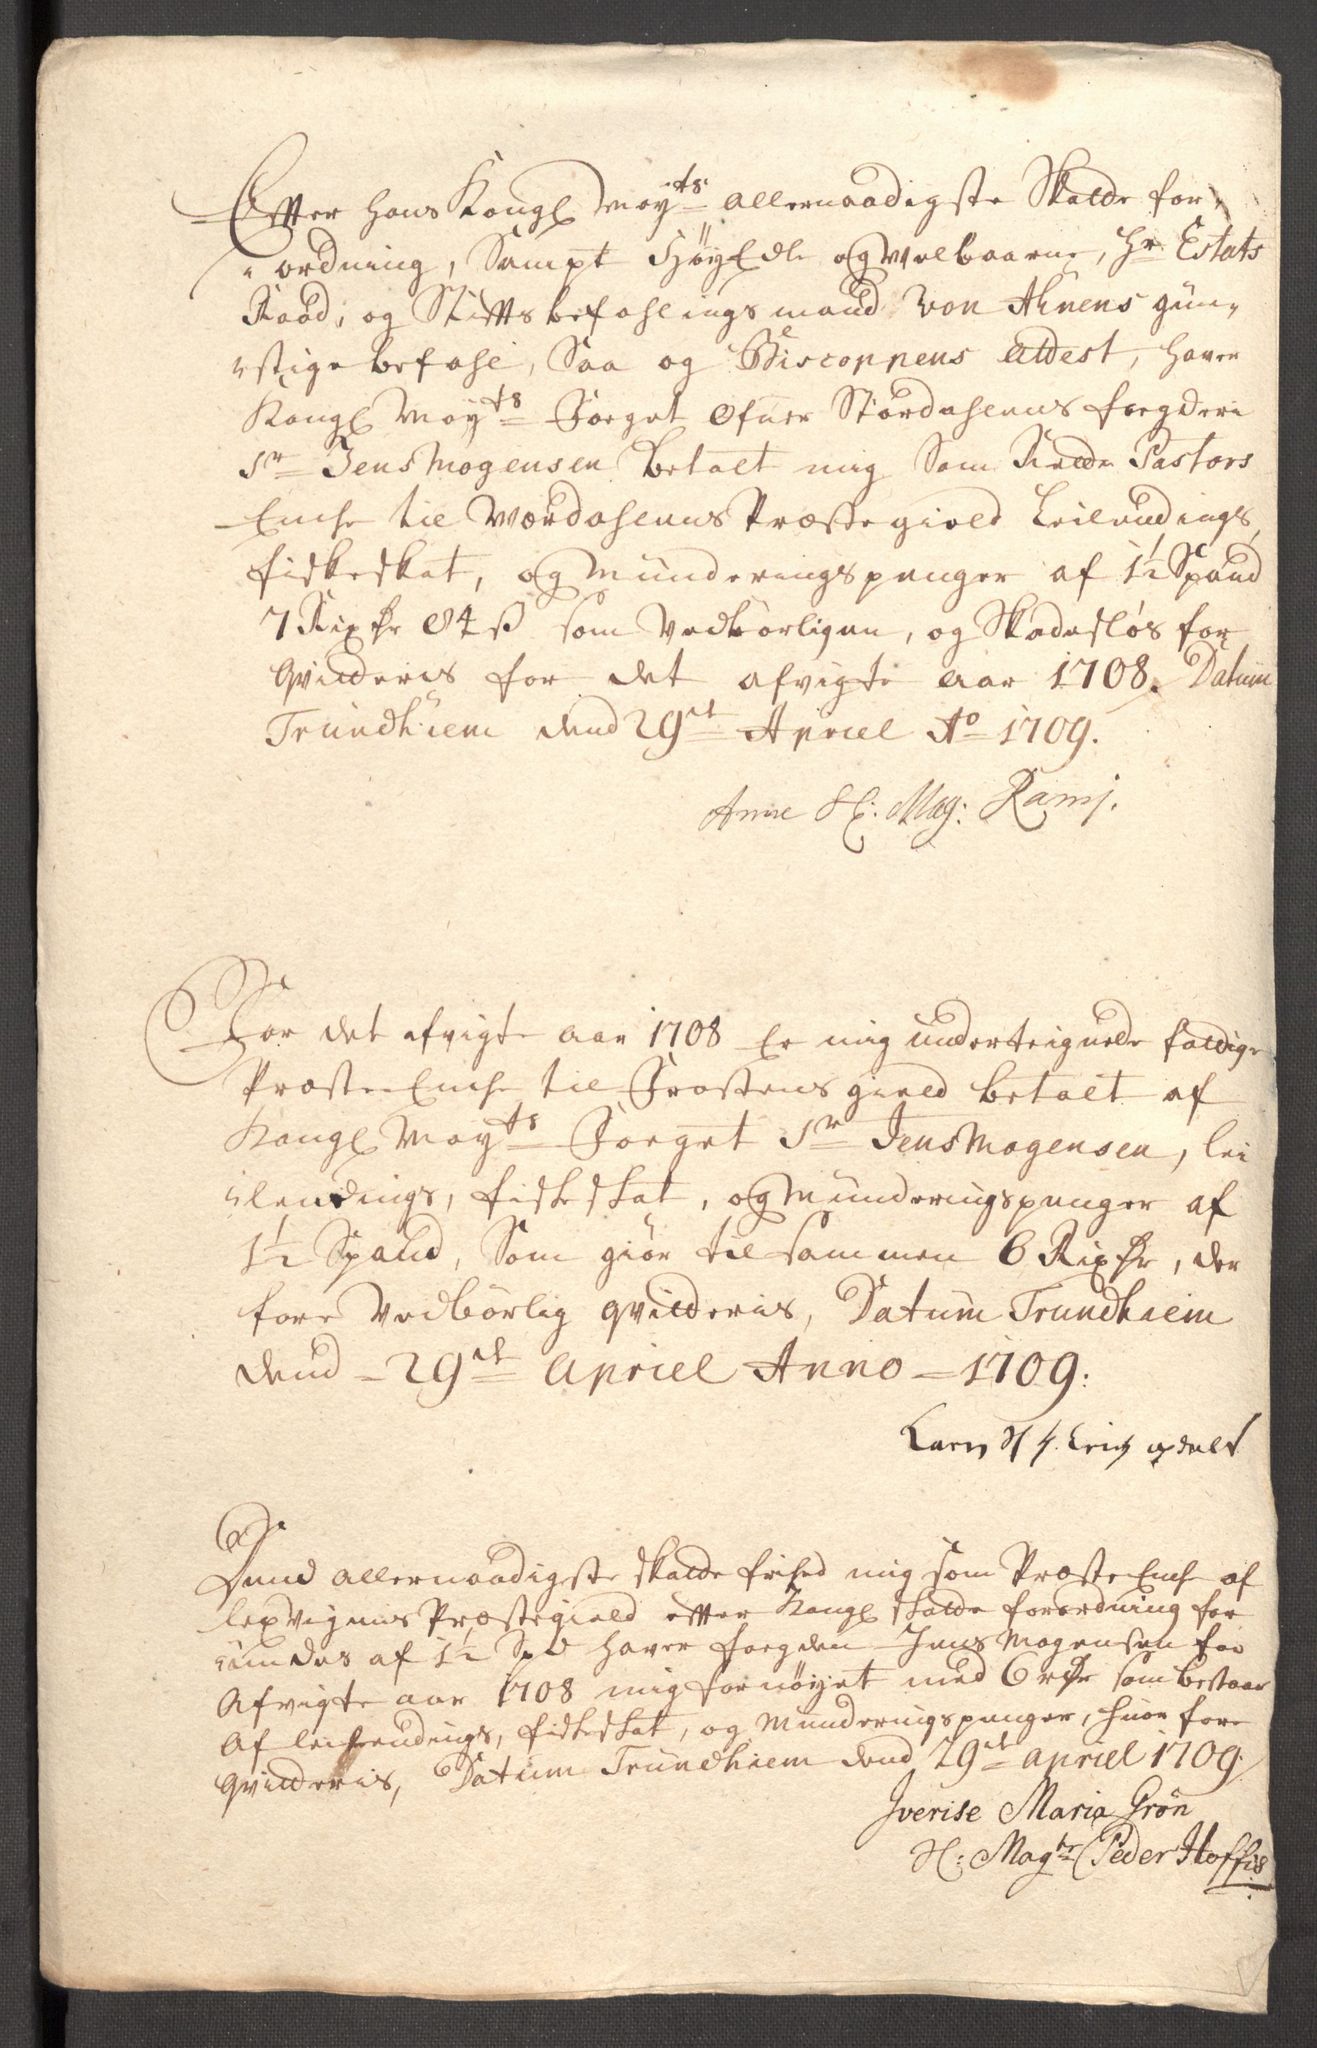 Efter hans Kongl May:ts allernaadigste Skatte for„
„ordning, Sampt HøyEdle og Welbaarne, Hr Estats
Raad, og Stiftsbefahlingsmand Von Ahnens gun„
„stige befahl, Saa og Biscoppens attest, haver
Kongl May:ts Foeget Ofver Størdahlens fogderi
Sr Jens Mogensen betalt mig Som Pastors
Enche til Værdahlens Præstegield Leilendings,
fiskeskat, og Munderingspenger af 1½ Spand
7 Rixdr 84 ß som Vedbørligen, og Skadesløs for
qvitteris for det afvigte aar 1708. Datum
Trundhiem dend 29de Apriel Ao 1709.
Anne Sl: Mag: Rami.
For det afvigte aar 1708 Er mig undertegnede fattige
Præste Enche til Frostens gield betalt af
Kongl May:ts Foeget Sr Jens Mogensen, lei
„lendings, fiskeskat, og Munderingspenger af
1½ Spand, Som giør tilsammen 6 Rixdr, der
fore Vedbørlig qvitteris, Datum Trundhiem
dend 29de Apriel Anno 1709:
Karen Sl
Dend allernaadigste skatte frihed mig som Præste Enche af
Lexvigens Præstegield efter Kongl skatte forordning for
„undes af 1½ Spd haver foegden Jens Mogensen for
Afvigte aar 1708 mig fornøyet med 6 rdr som bestaar
Af leilendings, fiskeskat, og Munderingspenger, huor fore
qvitteris, Datum Trundhiem dend 29de apriel 1709.
Iverise Maria Grøn
Sl: Magtr Peder Hoffs